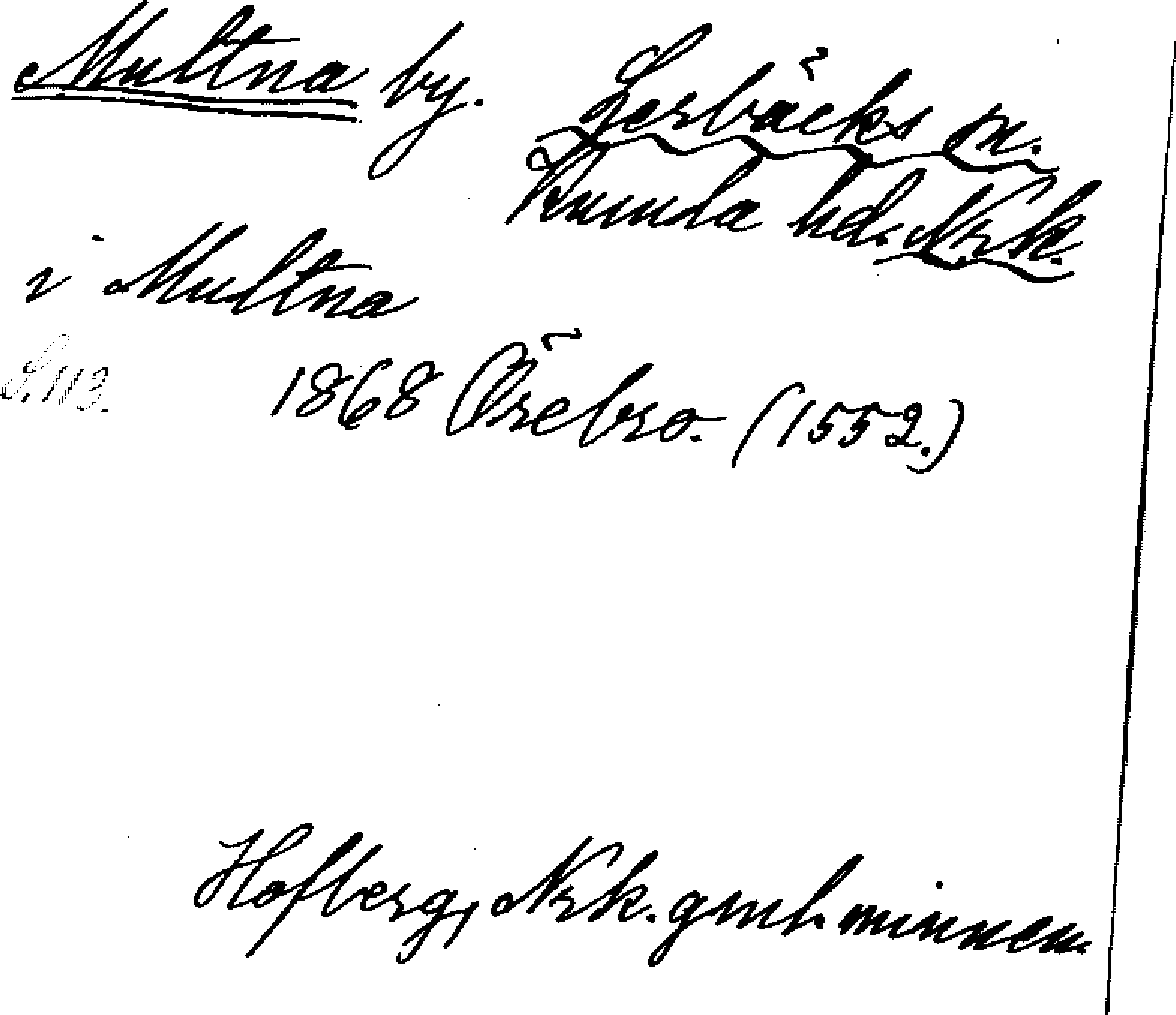 Multna by.
Lerbäcks sn.
Kumla hd. Nrk.
i Multna
S. 113.
1868 Örebro. (1552.)
Hofberg, Nrk. gml. minnen.